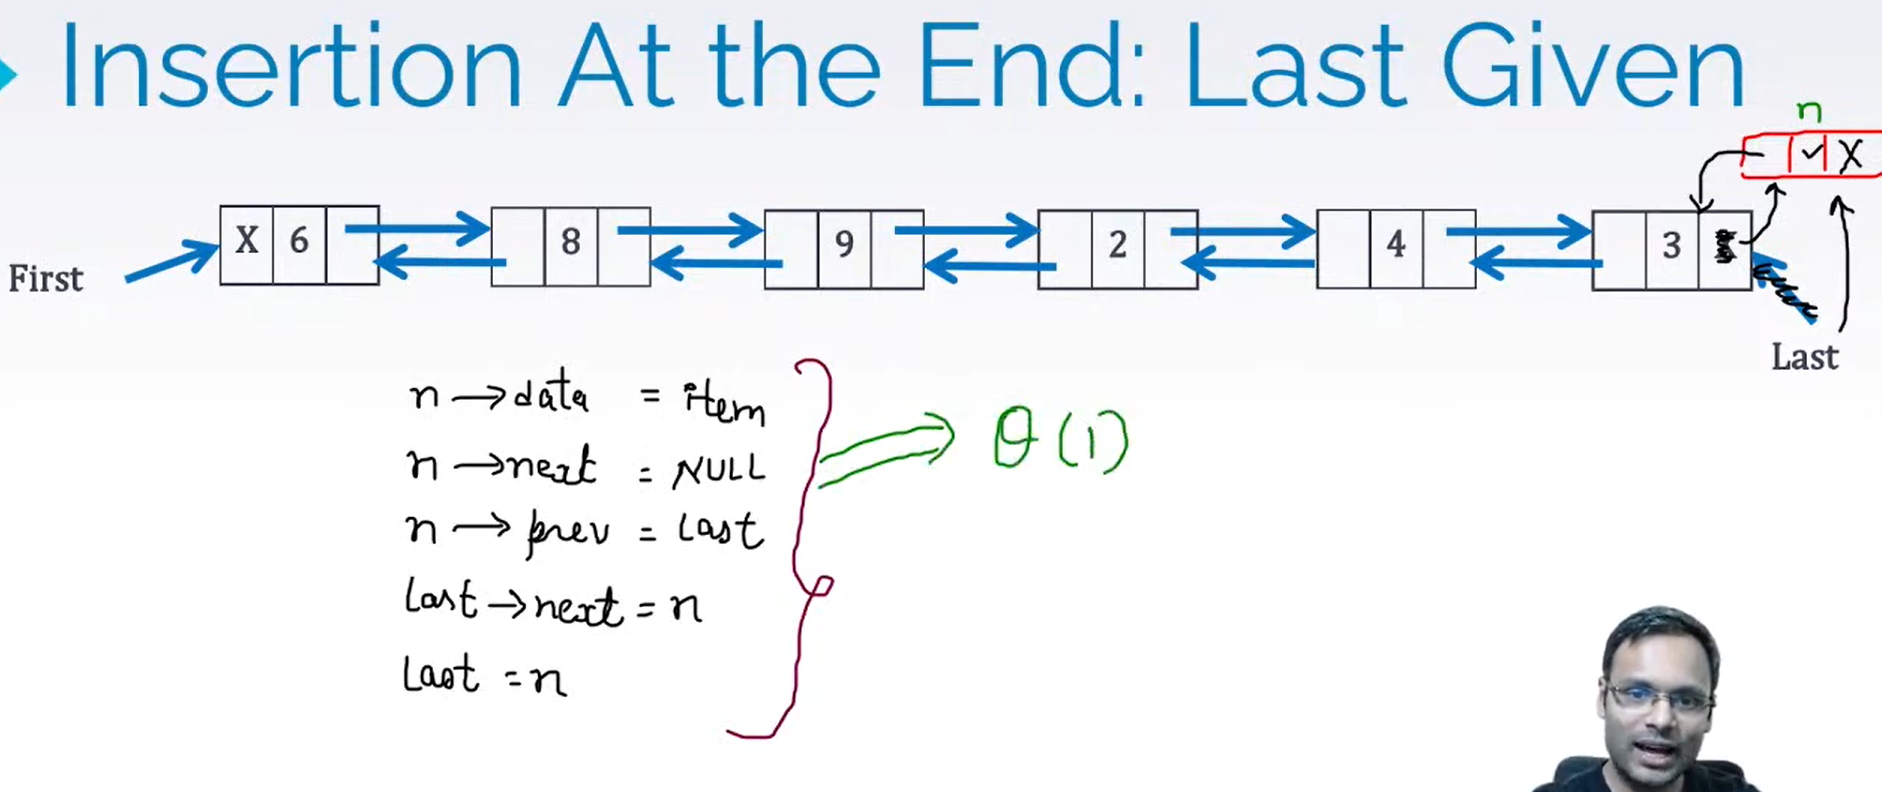 Insertion At the End: Last Given
n
✓ X
X 6 8 9 2 4 3
First
Last
n → data = item
n → next = NULL
n → prev = Last
Last → next = n
Last = n
θ(1)